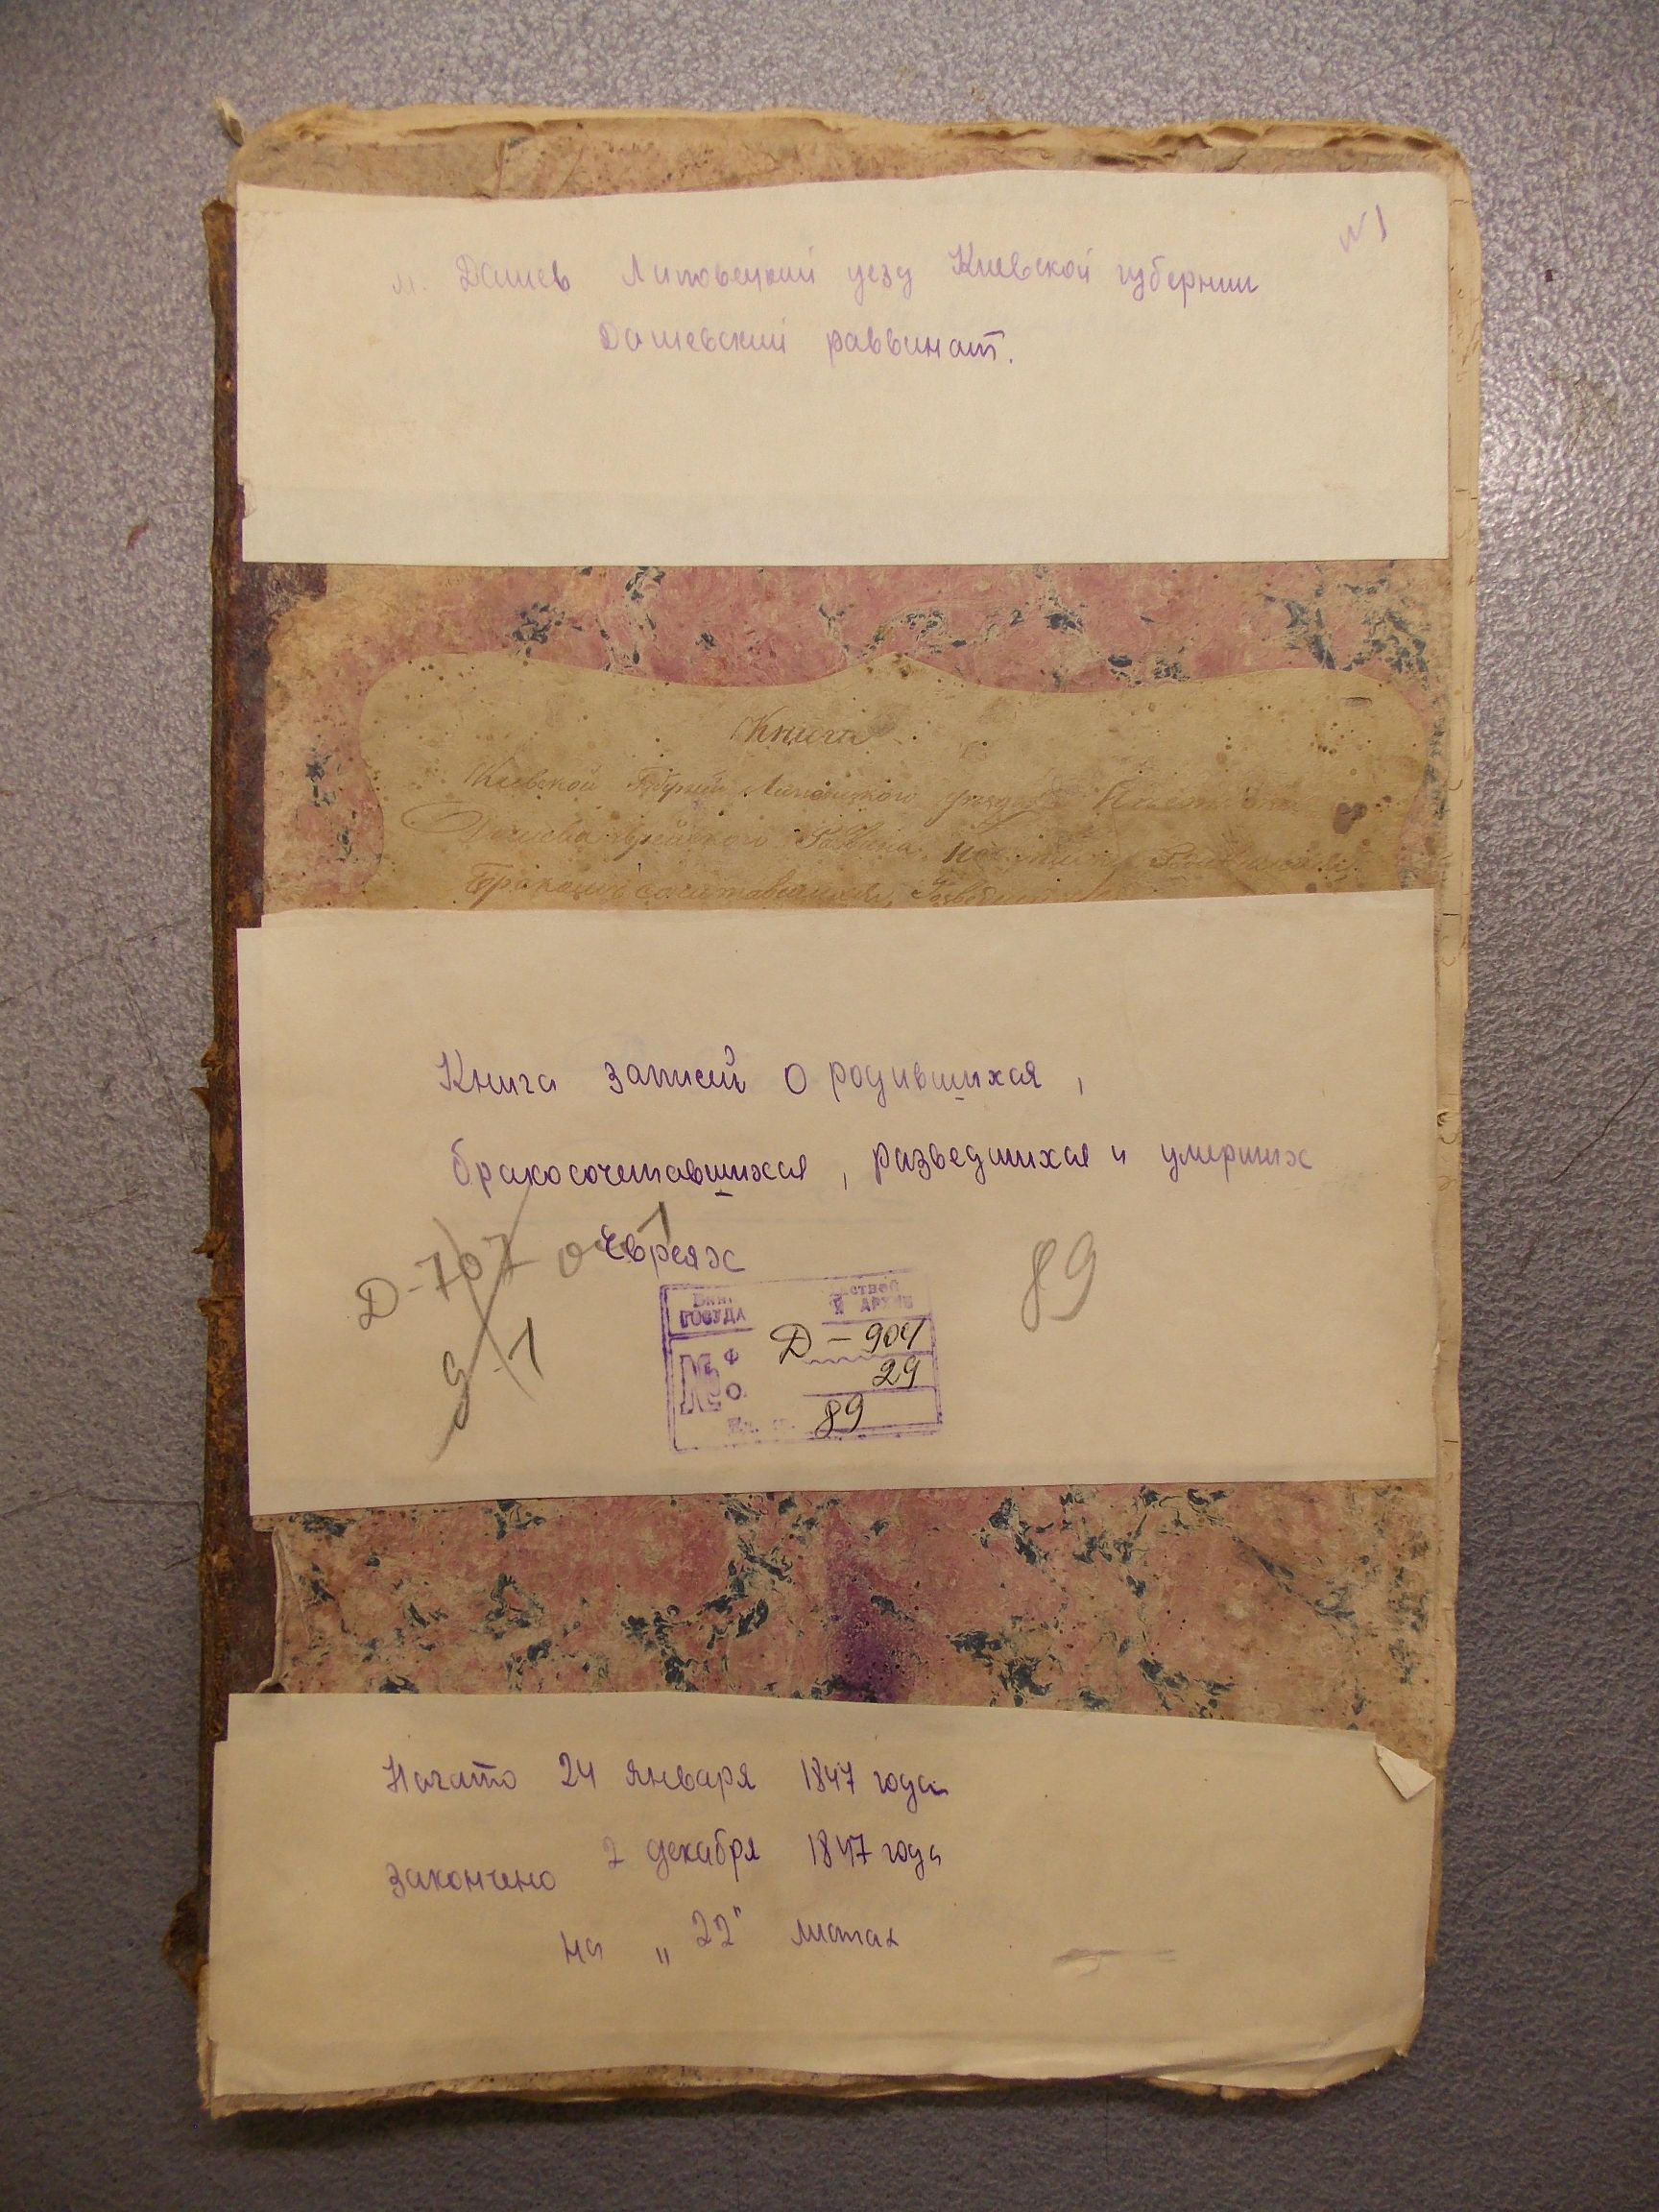 №1
м. Дашев Липовецкий уезд Киевской губернии
Дашевский раввинат.
Книга
Киевской Губернии Липовецкого
Дашева Еврейского Раввина
Бракомъ сочитавшихся,
Книга записей о родившихся,
бракосочетавшихся, разведшихся и умерших
евреях
Д-707 оп 1
89
ГОСУДА
И АРХИВ
Д-904
№ Ф
29
О.
89
Начато 24 января 1847 года
закончено 2 декабря 1847 года
на „22" листах